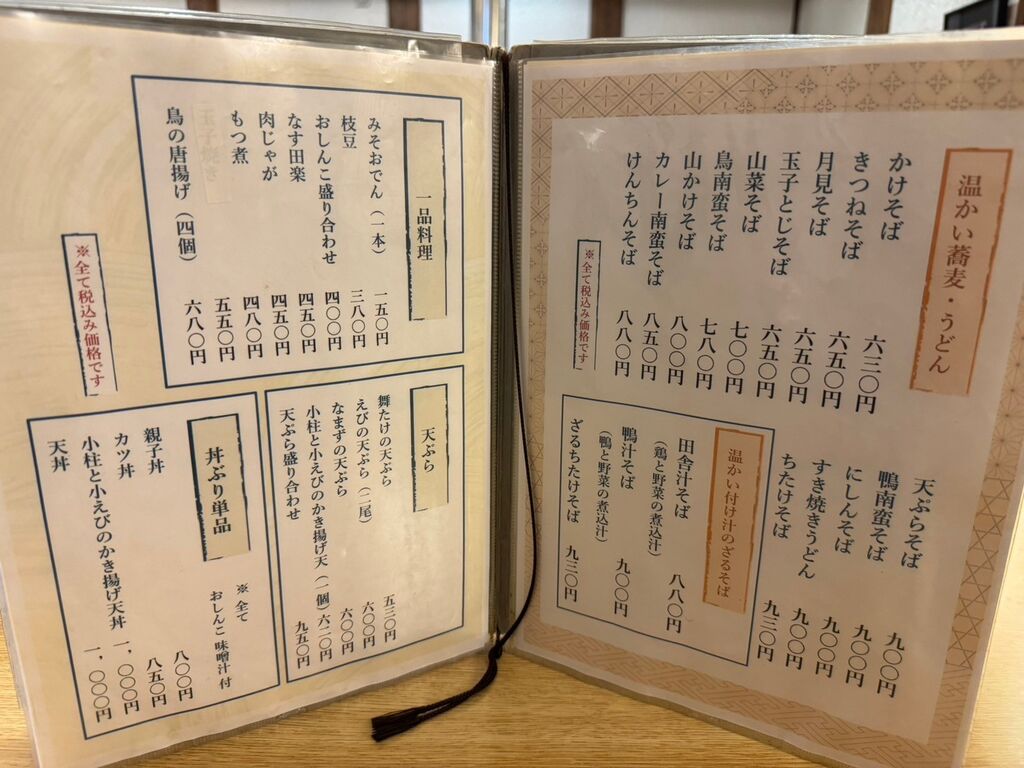 温かい蕎麦・うどん
かけそば 六三〇円
きつねそば 六五〇円
月見そば 六五〇円
玉子とじそば 六五〇円
山菜そば 七〇〇円
鳥南蛮そば 七八〇円
山かけそば 八〇〇円
カレー南蛮そば 八五〇円
けんちんそば 八八〇円
※全て税込み価格です
天ぷらそば 九〇〇円
鴨南蛮そば 九〇〇円
にしんそば 九〇〇円
すき焼きうどん 九〇〇円
ちたけそば 九三〇円
温かい付け汁のざるそば
田舎汁そば 八八〇円
（鶏と野菜の煮込汁）
鴨汁そば 九〇〇円
（鴨と野菜の煮込汁）
ざるちたけそば 九三〇円
一品料理
みそおでん（一本） 一五〇円
枝豆 三八〇円
おしんこ盛り合わせ 四〇〇円
なす田楽 四五〇円
肉じゃが 四五〇円
もつ煮 四八〇円
五五〇円
鳥の唐揚げ（四個） 六八〇円
※全て税込み価格です
天ぷら
舞たけの天ぷら 五三〇円
えびの天ぷら（二尾） 六〇〇円
なまずの天ぷら 六〇〇円
小柱と小えびのかき揚げ天（一個） 六二〇円
天ぷら盛り合わせ 九五〇円
丼ぶり単品
※全て
おしんこ 味噌汁付
親子丼 八〇〇円
カツ丼 八五〇円
小柱と小えびのかき揚げ天丼 一、〇〇〇円
天丼 一、〇〇〇円